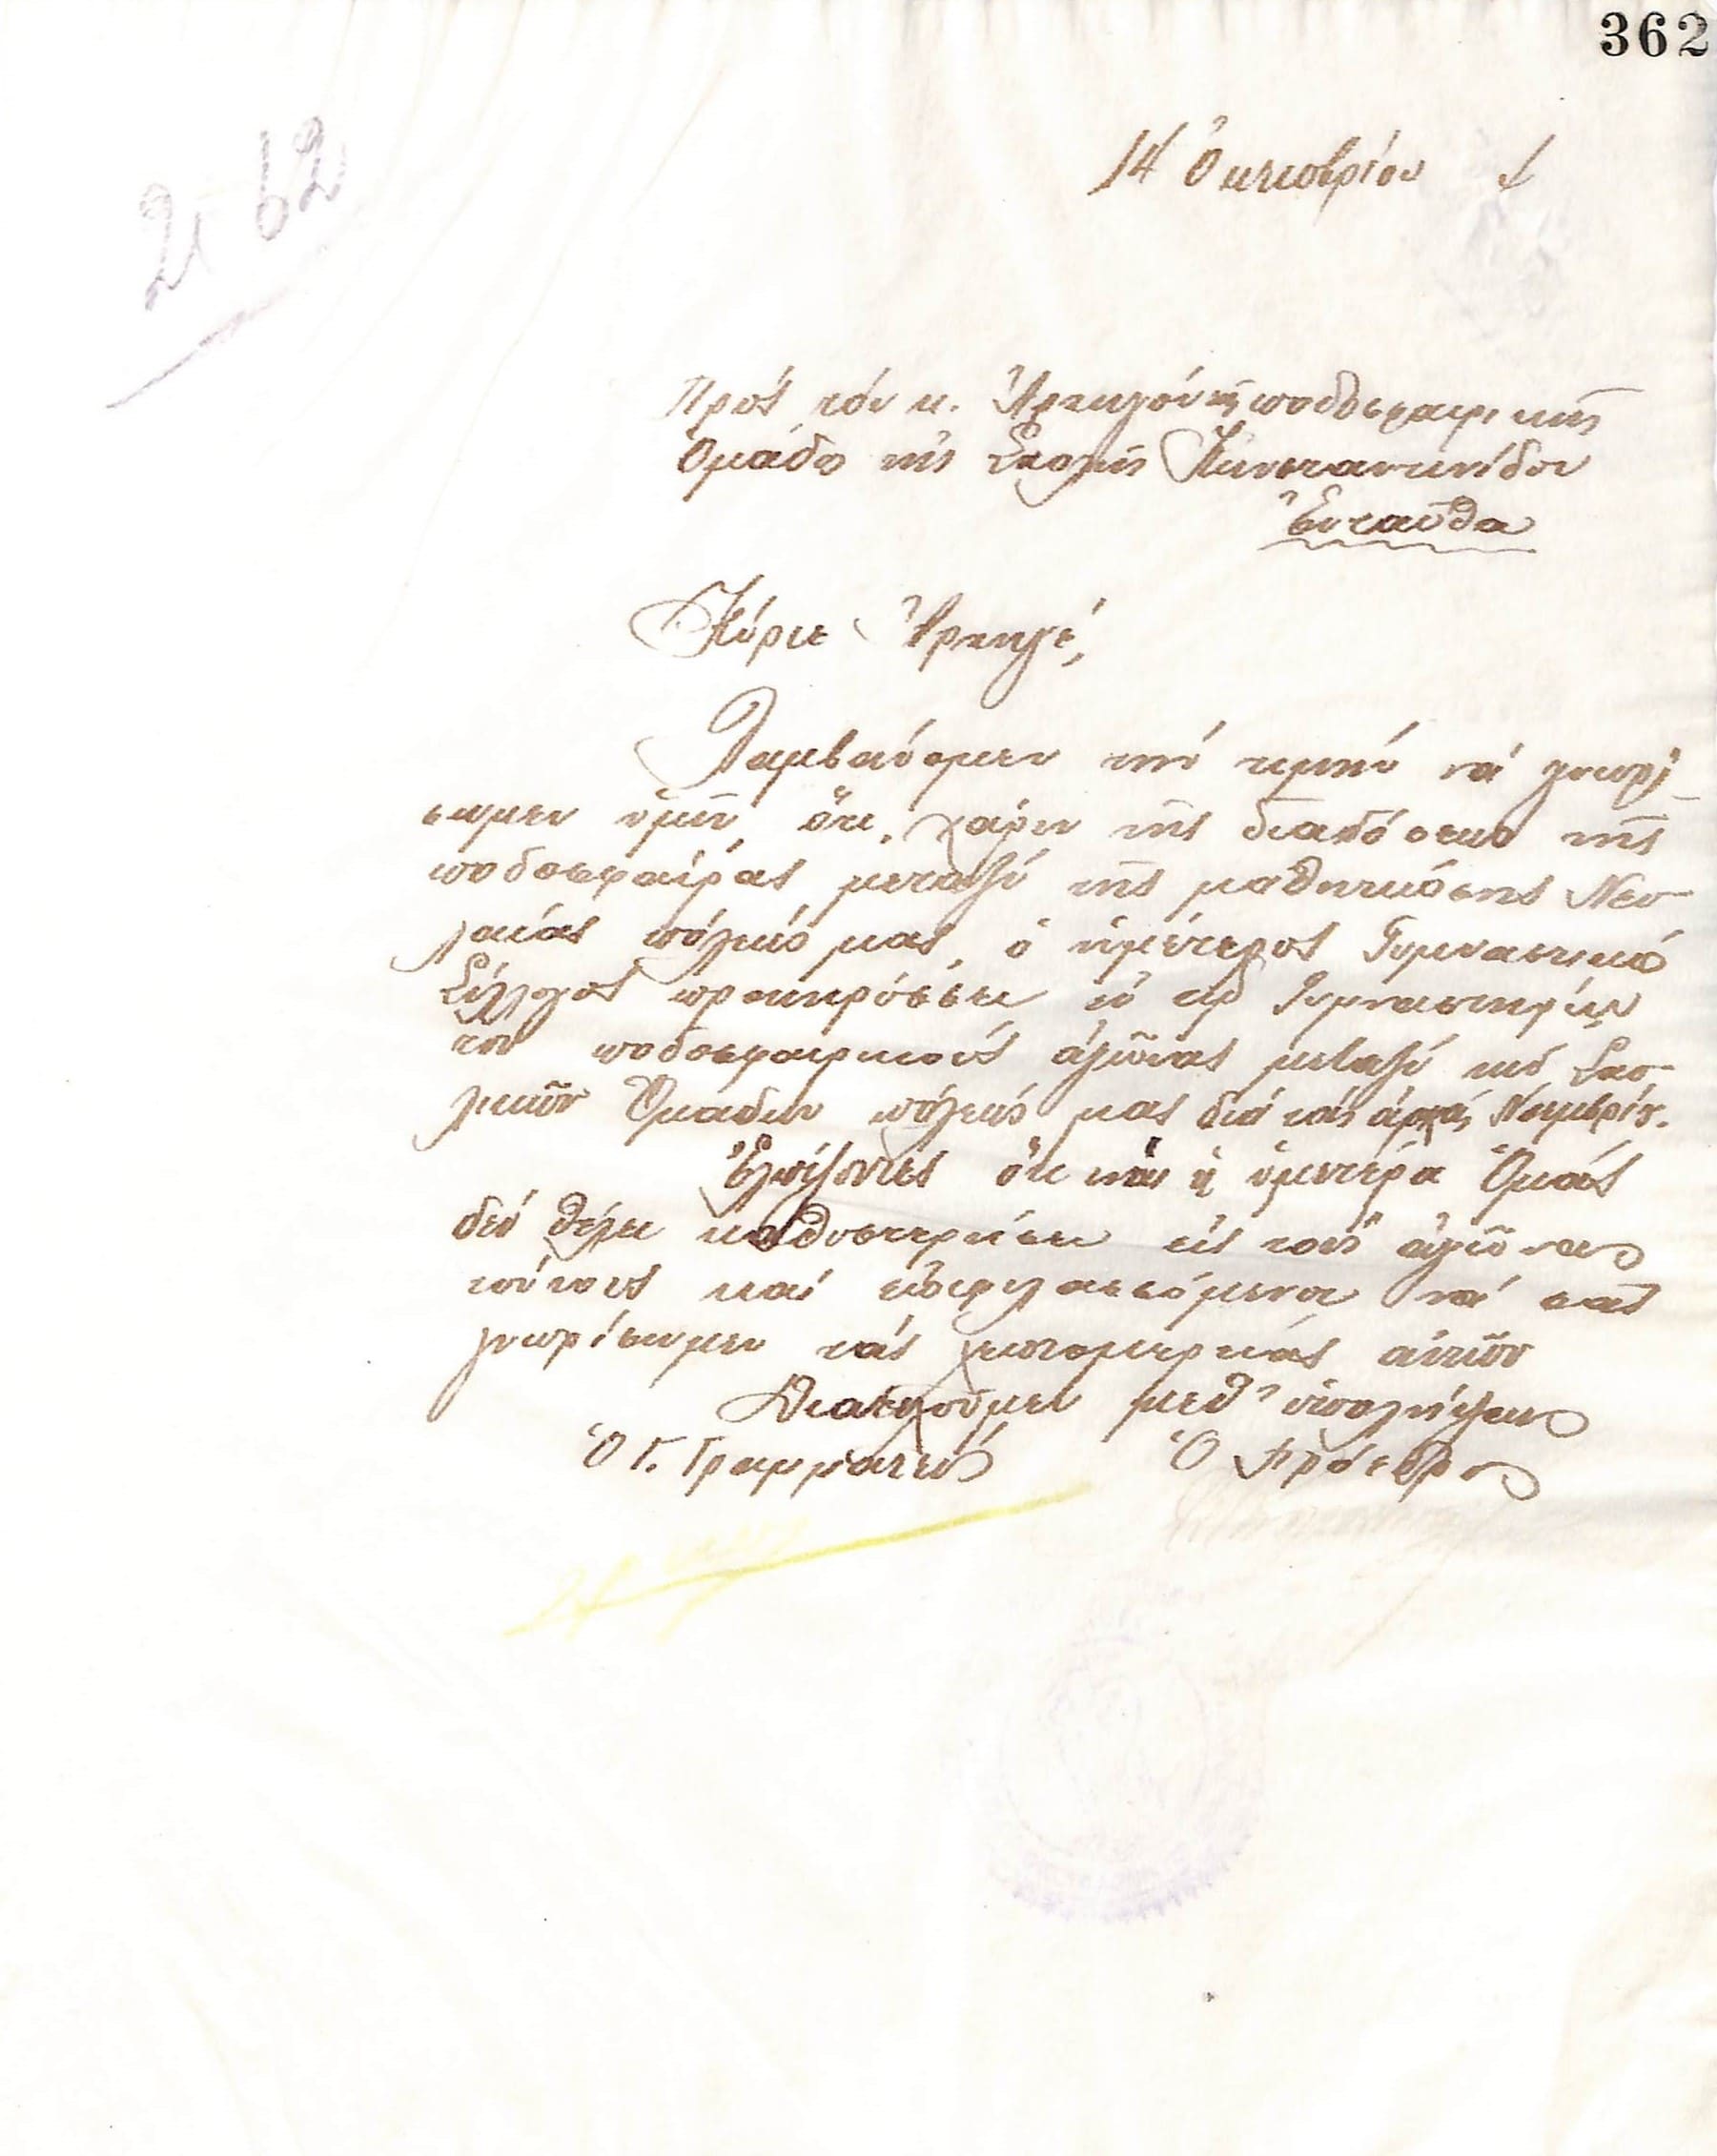 362
2162
14 Ὀκτωβρίου
Πρὸς τὸν κ. Ἀρχηγὸν τῆς ποδοσφαιρικῆς
Ὁμάδος τῆς Σχολῆς Κωνσταντινίδου
Ἐνταῦθα
Κύριε Ἀρχηγέ,
Λαμβάνομεν τὴν τιμὴν νὰ γνωρί-
σωμεν ὑμῖν, ὅτι, χάριν τῆς διαδόσεως τῆς
ποδοσφαίρας μεταξὺ τῆς μαθητιώσης Νεο-
λαίας πόλεώς μας, ὁ ἡμέτερος Γυμναστικὸς
Σύλλογος προκηρύσσει ἐν τῷ Γυμναστηρίῳ
του ποδοσφαιρικοὺς ἀγῶνας μεταξὺ τῶν Σχο-
λικῶν Ὁμάδων πόλεώς μας διὰ τὰς ἀρχὰς Νοεμβρίου.
Ἐλπίζοντες ὅτι καὶ ἡ ὑμετέρα Ὁμὰς
δὲν θέλει καθυστερήσει εἰς τοὺς ἀγῶνας
τούτους καὶ ἐπιφυλασσόμενοι νὰ σᾶς
γνωρίσωμεν τὰς λεπτομερείας αὐτῶν
Διατελοῦμεν μεθ' ὑπολήψεως
Ὁ Γ. Γραμματεὺς Ὁ Πρόεδρος